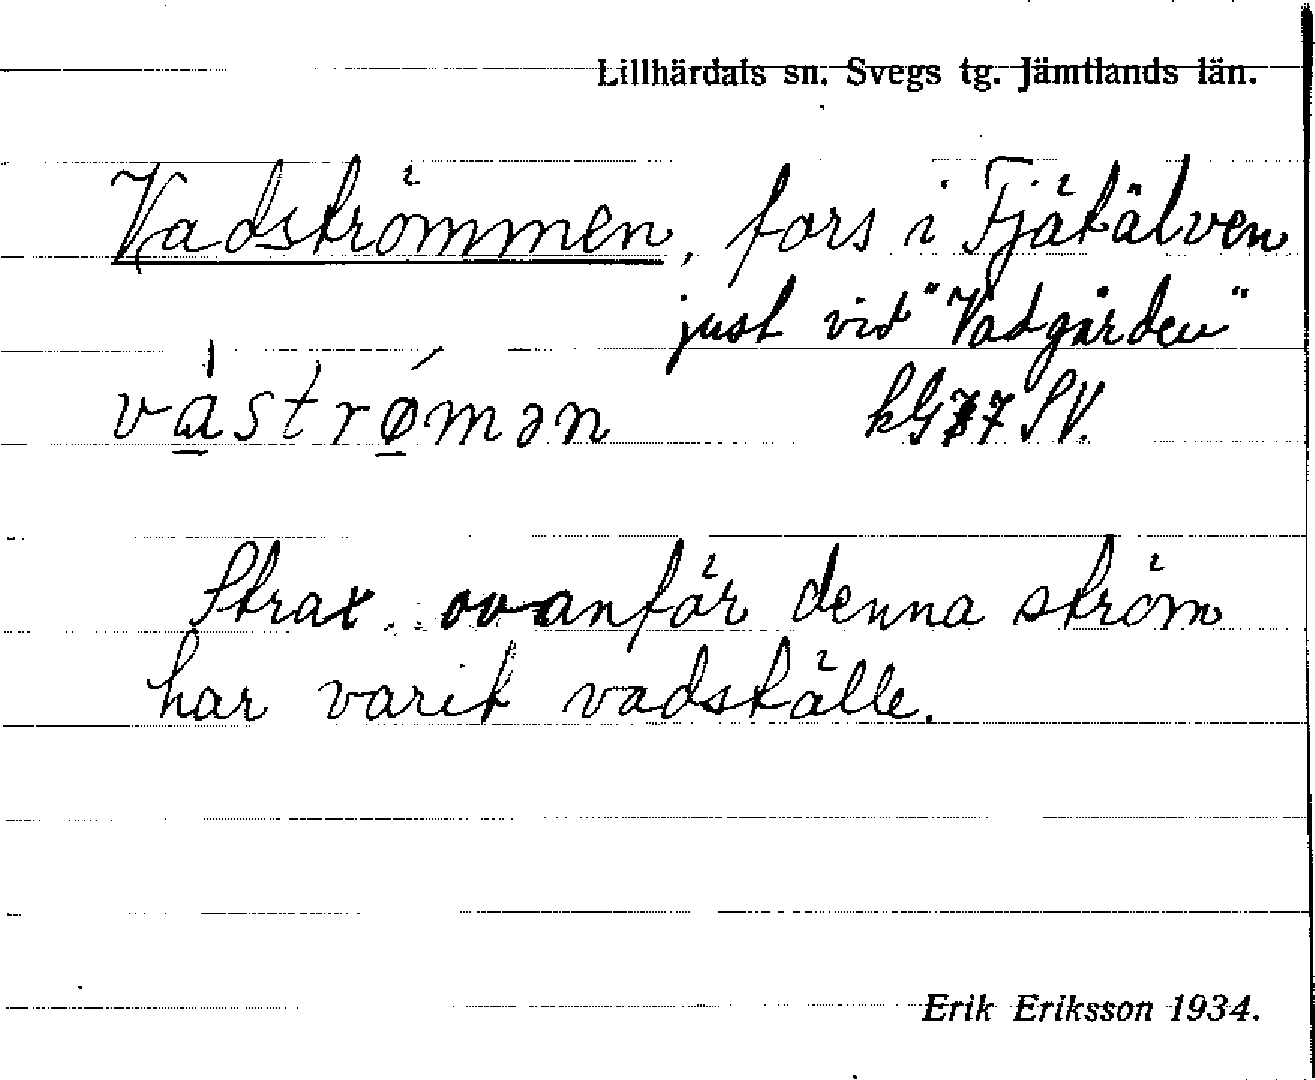 Lillhärdals sn. Svegs tg. Jämtlands län.
Vadströmmen, fors i Fjätälven
just vid "Vadgården"
va̲strø̲mən kG77 SV.
Strax ovanför denna ström
har varit vadställe.
Erik Eriksson 1934.